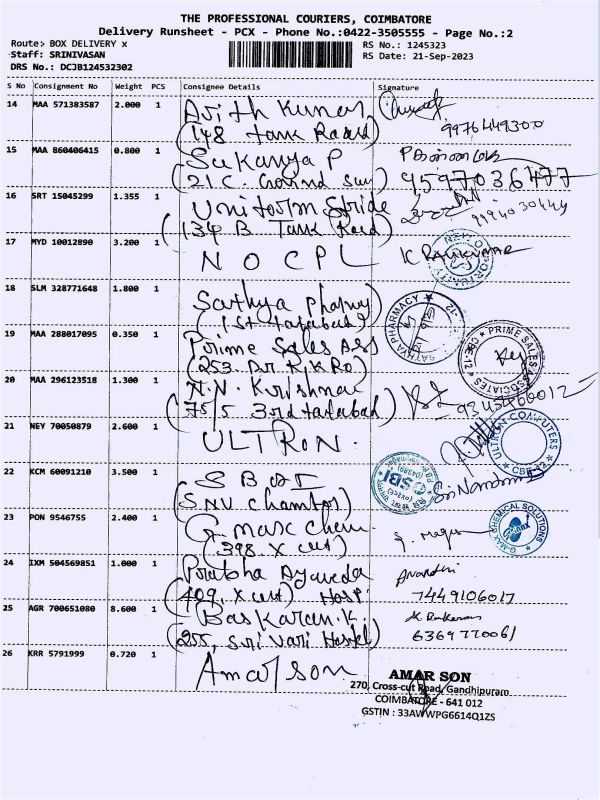 THE PROFESSIONAL COURIERS, COIMBATORE
Delivery Runsheet - PCX - Phone No.:0422-3505555 - Page No.:2
Route:- BOX DELIVERY x
Staff: SRINIVASAN
DRS No.: DCJB124532302
RS No.: 1245323
RS Date: 21-Sep-2023
S No Consignment No Weight PCS Consignee Details Signature
14 MAA 571383587 2.000 1 Ajith Kumar
(148 Tank Road)
9976449300
15 MAA 860406415 0.800 1 Sukanya P
(21 C. Govind
9597036477
16 SRT 15045299 1.355 1 Uniform Stride
(134 B Tank Road)
9994030444
17 MYD 10012890 3.200 1 NOCPL
K RAVIKUMAR
18 SLM 328771648 1.800 1 Sathya Phamy
(1st tatabad)
SATHYA PHARMACY
19 MAA 288017095 0.350 1 Prime Sales Ass
(253. Dr. R.K Ro)
PRIME SALES ASSOCIATES CBE-12
20 MAA 296123518 1.300 1 N.N. Krishna
(75/5 3rd tatabad)
9345466012
21 NEY 70050879 2.600 1 ULTRON.
ULTRON COMPUTERS CBE-12
22 KCM 60091210 3.500 1 S B O I
(SNV Chambor)
SBI
23 PON 9546755 2.400 1 G. max chem
(398. X cut)
G-MAX CHEMICAL SOLUTIONS
24 IXM 504569851 1.000 1 Prabha Ayurveda
(409, X cut) Hosp
Anandhi
7449106017
25 AGR 700651080 8.600 1 Baskaran.K.
(255, Sri Vari Hostel)
6369770061
26 KRR 5791999 0.720 1 Amar Son
AMAR SON
270, Cross-cut Road, Gandhipuram
COIMBATORE - 641 012
GSTIN : 33AWWPG6614Q1ZS